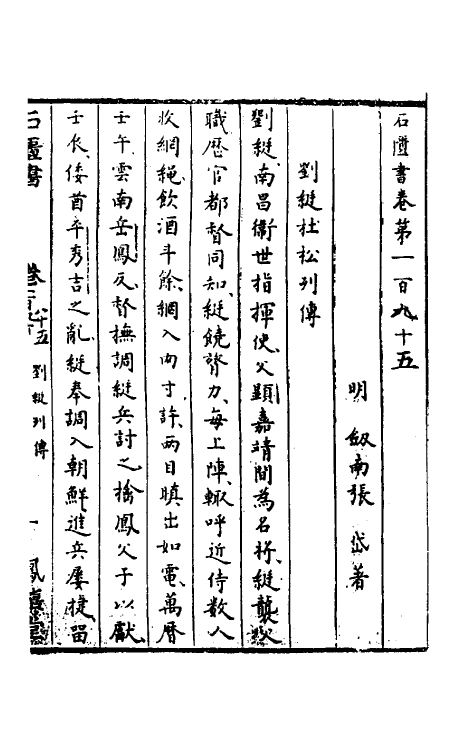 石匱書卷第一百九十五
明 劔南張 岱著
劉綎杜松列傳
劉綎南昌衞世指揮使父顯嘉靖間為名將綎襲父
職歴官都督同知綎饒膂力每上陣輒呼近侍数人
收網繩飲酒斗餘網入肉寸許两目瞋出如電萬曆
壬午雲南岳鳳反督撫調綎兵討之擒鳳父子以獻
壬辰倭酋平秀吉之亂綎奉調入朝鮮進兵屡捷留
石匱書 卷一百九十五 劉綎列傳 一 鳳嬉堂